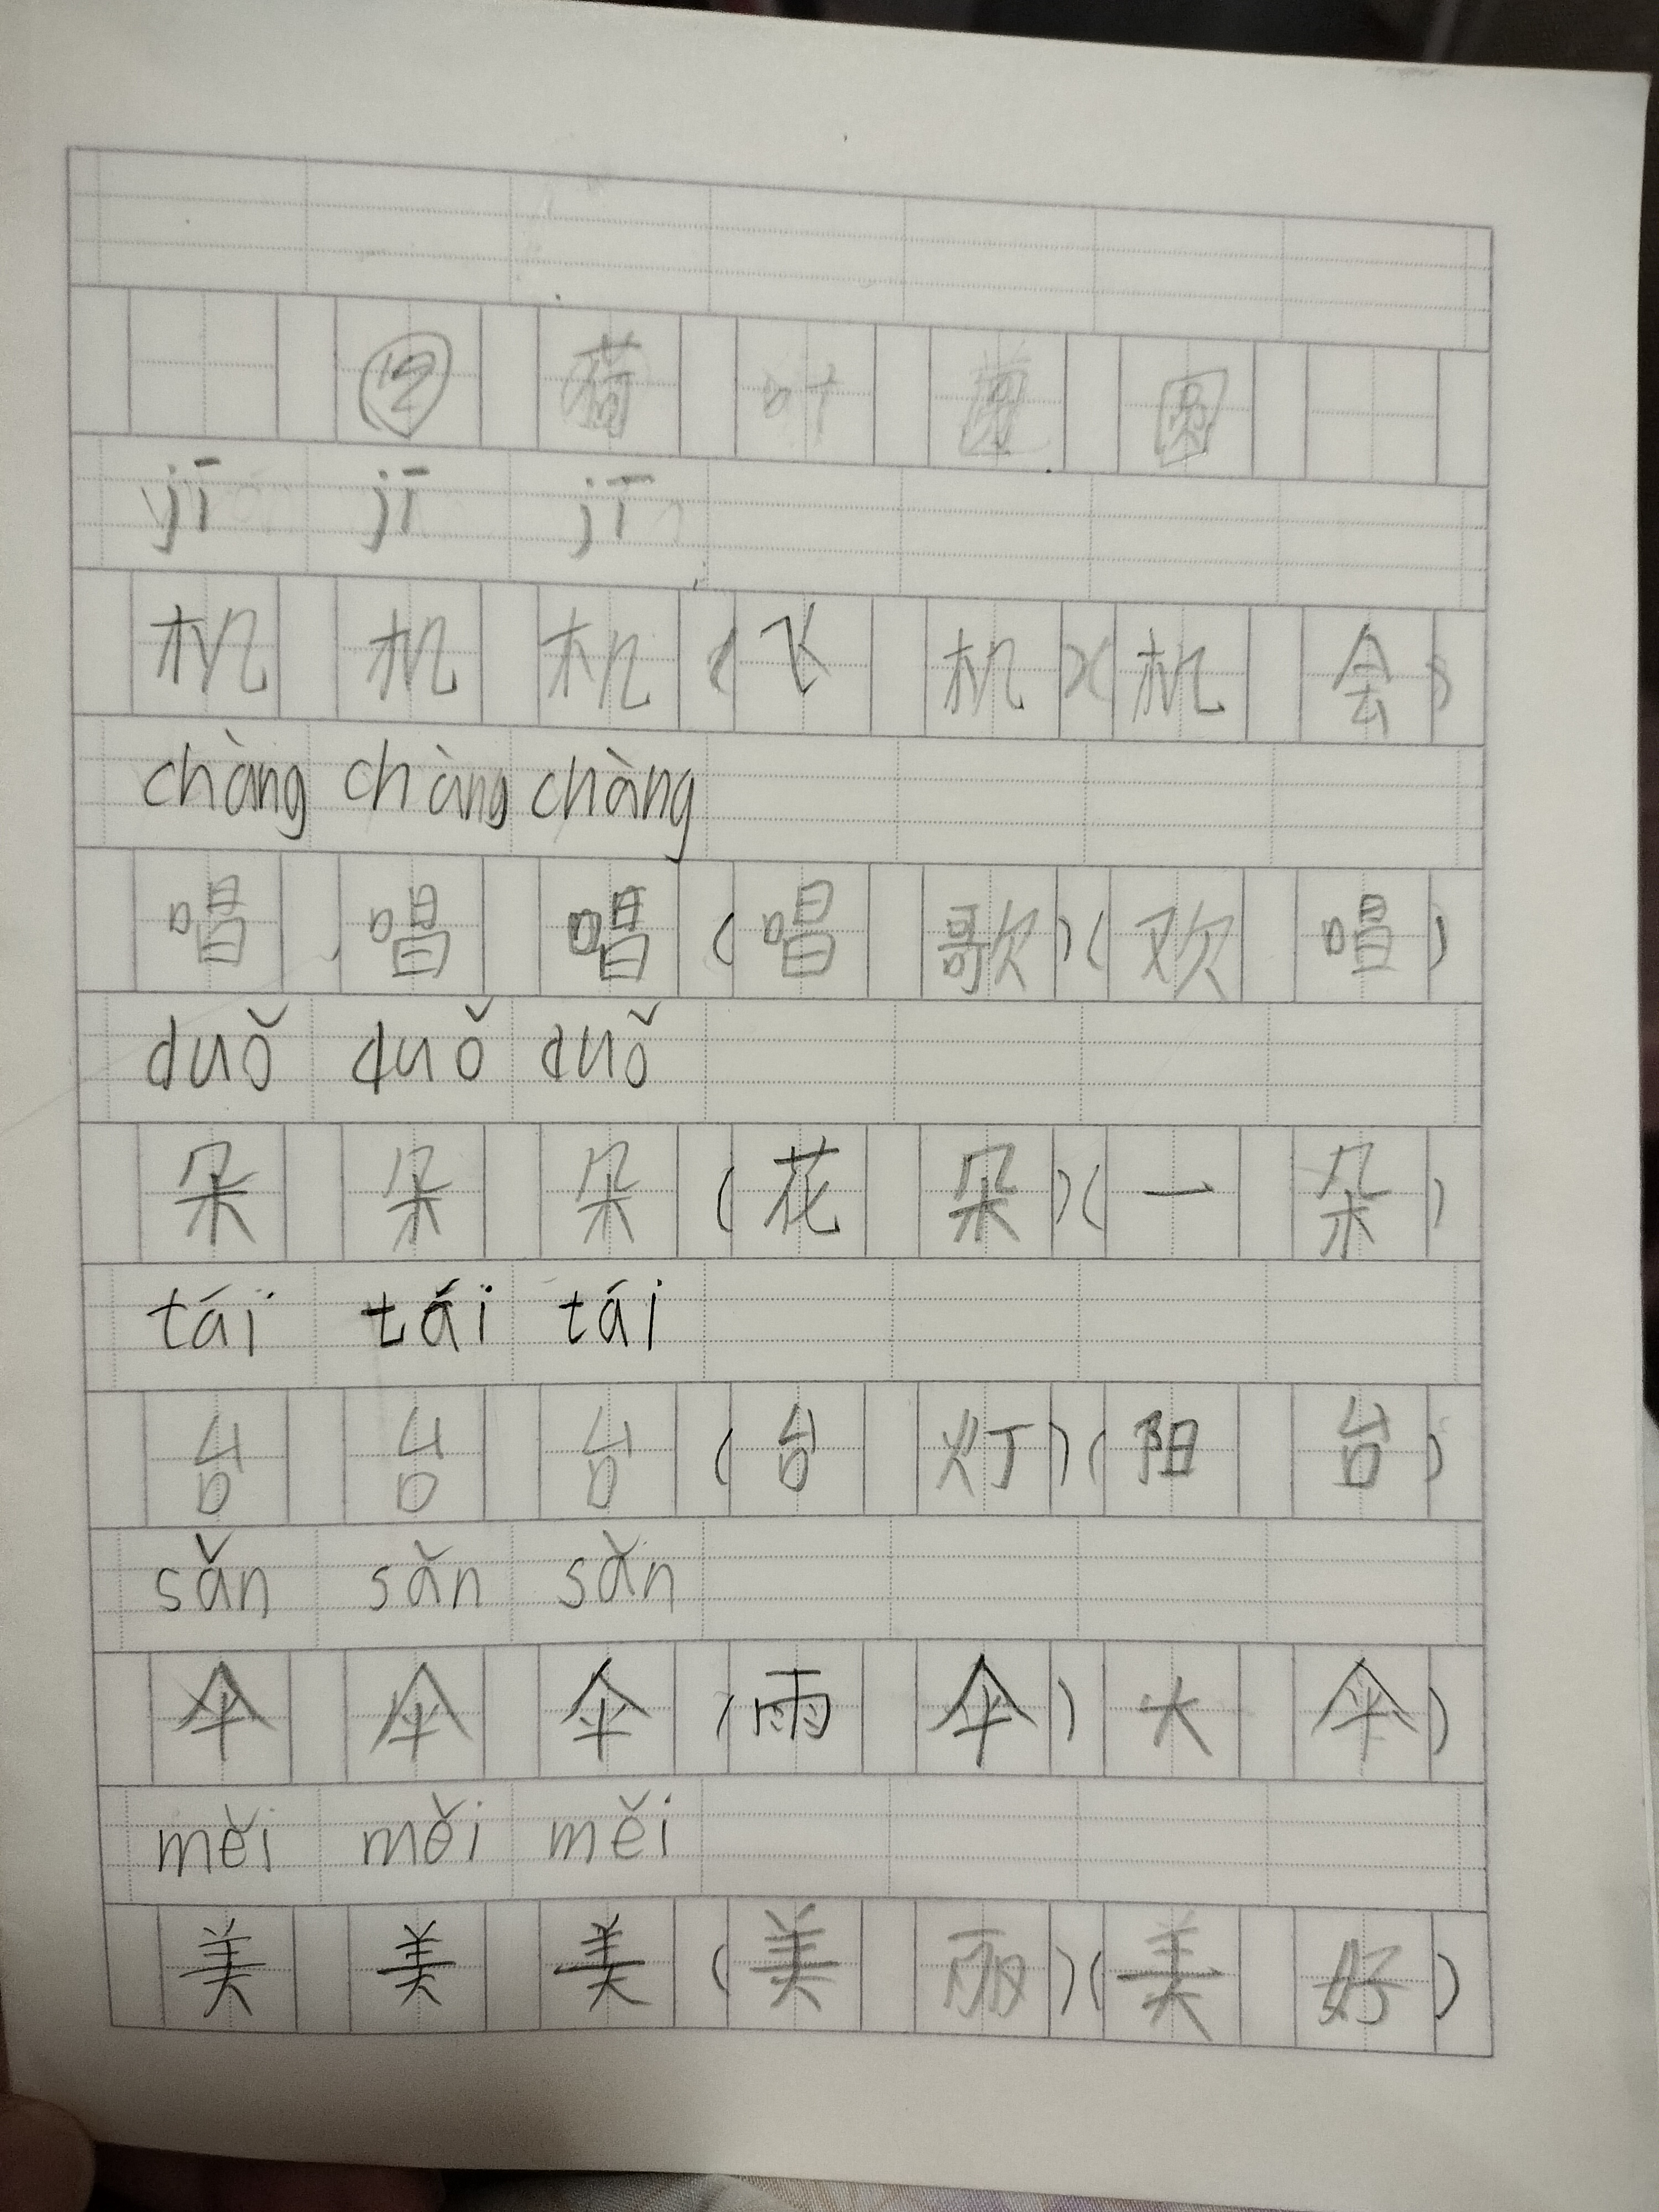 ⑫ 荷叶圆圆
jī jī jī
机 机 机 (飞机)(机会)
chàng chàng chàng
唱 唱 唱 (唱歌)(欢唱)
duǒ duǒ duǒ
朵 朵 朵 (花朵)(一朵)
tái tái tái
台 台 台 (台灯)(阳台)
sǎn sǎn sǎn
伞 伞 伞 (雨伞) 大伞)
měi měi měi
美 美 美 (美丽)(美好)